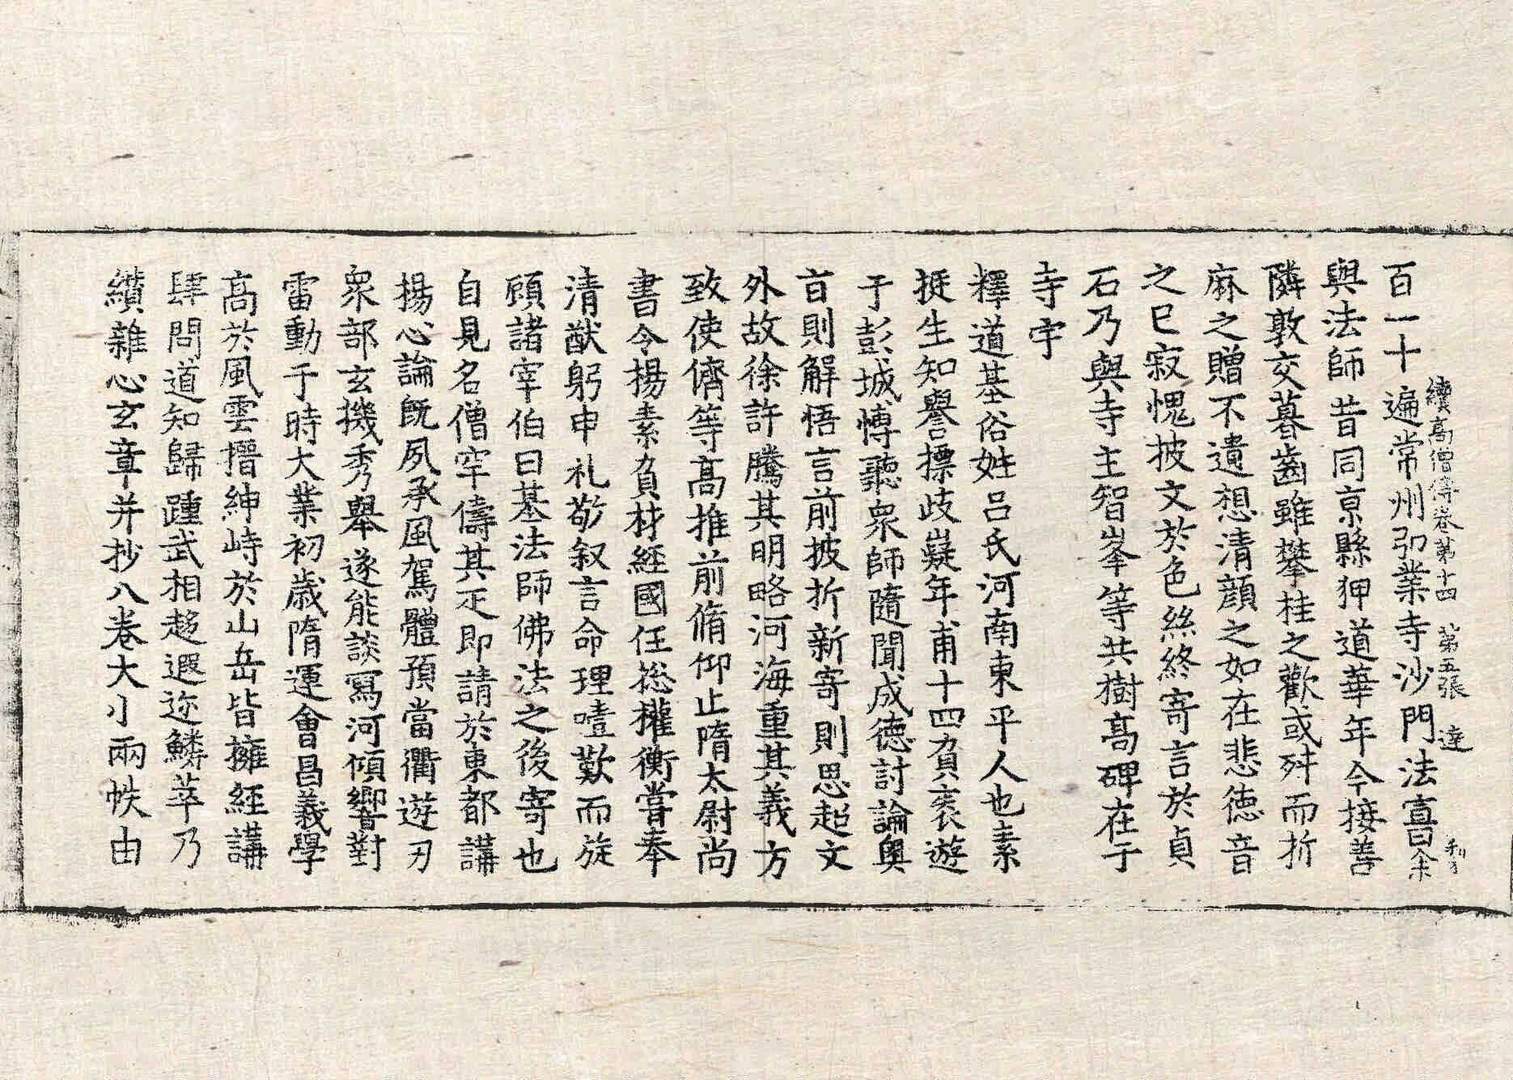 續高僧傳卷第十四　第五張　達
百一十遍常州弘業寺沙門法宣余
與法師昔同京縣狎道華年今接善
隣敦交暮齒雖攀桂之歡或舛而折
麻之贈不遺想清顔之如在悲德音
之已寂愧披文於色絲終寄言於貞
石乃與寺主智峯等共樹高碑在于
寺宇
釋道基俗姓呂氏河南東平人也素
挺生知譽摽歧嶷年甫十四負袠遊
于彭城博聽衆師隨聞成德討論奥
旨則解悟言前披折新寄則思超文
外故徐許騰其明略河海重其義方
致使儕等高推前脩仰止隋太尉尚
書令楊素負材經國任揔權衡嘗奉
清猷躬申礼敬叙言命理噎歎而旋
顧諸宰伯曰基法師佛法之後寄也
自見名僧罕儔其疋即請於東都講
揚心論旣夙承風駕體預當衢遊刃
衆部玄機秀舉遂能談寫河傾響對
雷動于時大業初歲隋運會昌義學
高於風雲搢紳峙於山岳皆擁經講
肆問道知歸踵武相趍遐迩鱗萃乃
纘雜心玄章并抄八卷大小兩帙由